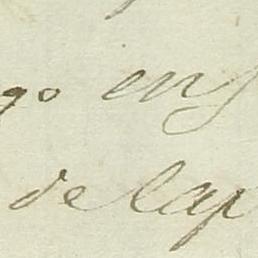 go en
de lap